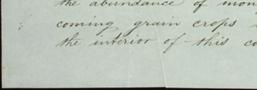 the abundance of mon
coming grain crops
the interior of this co